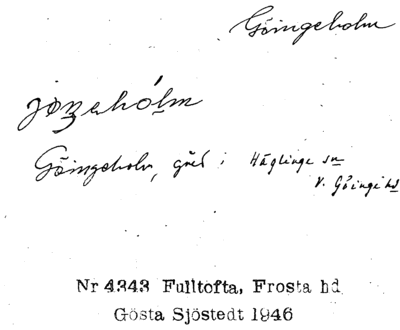 Göingeholm
jøʒəhólm
Göingeholm, gård i Häglinge sn
V. Göinge hd
Nr 4343 Fulltofta, Frosta hd
Gösta Sjöstedt 1946